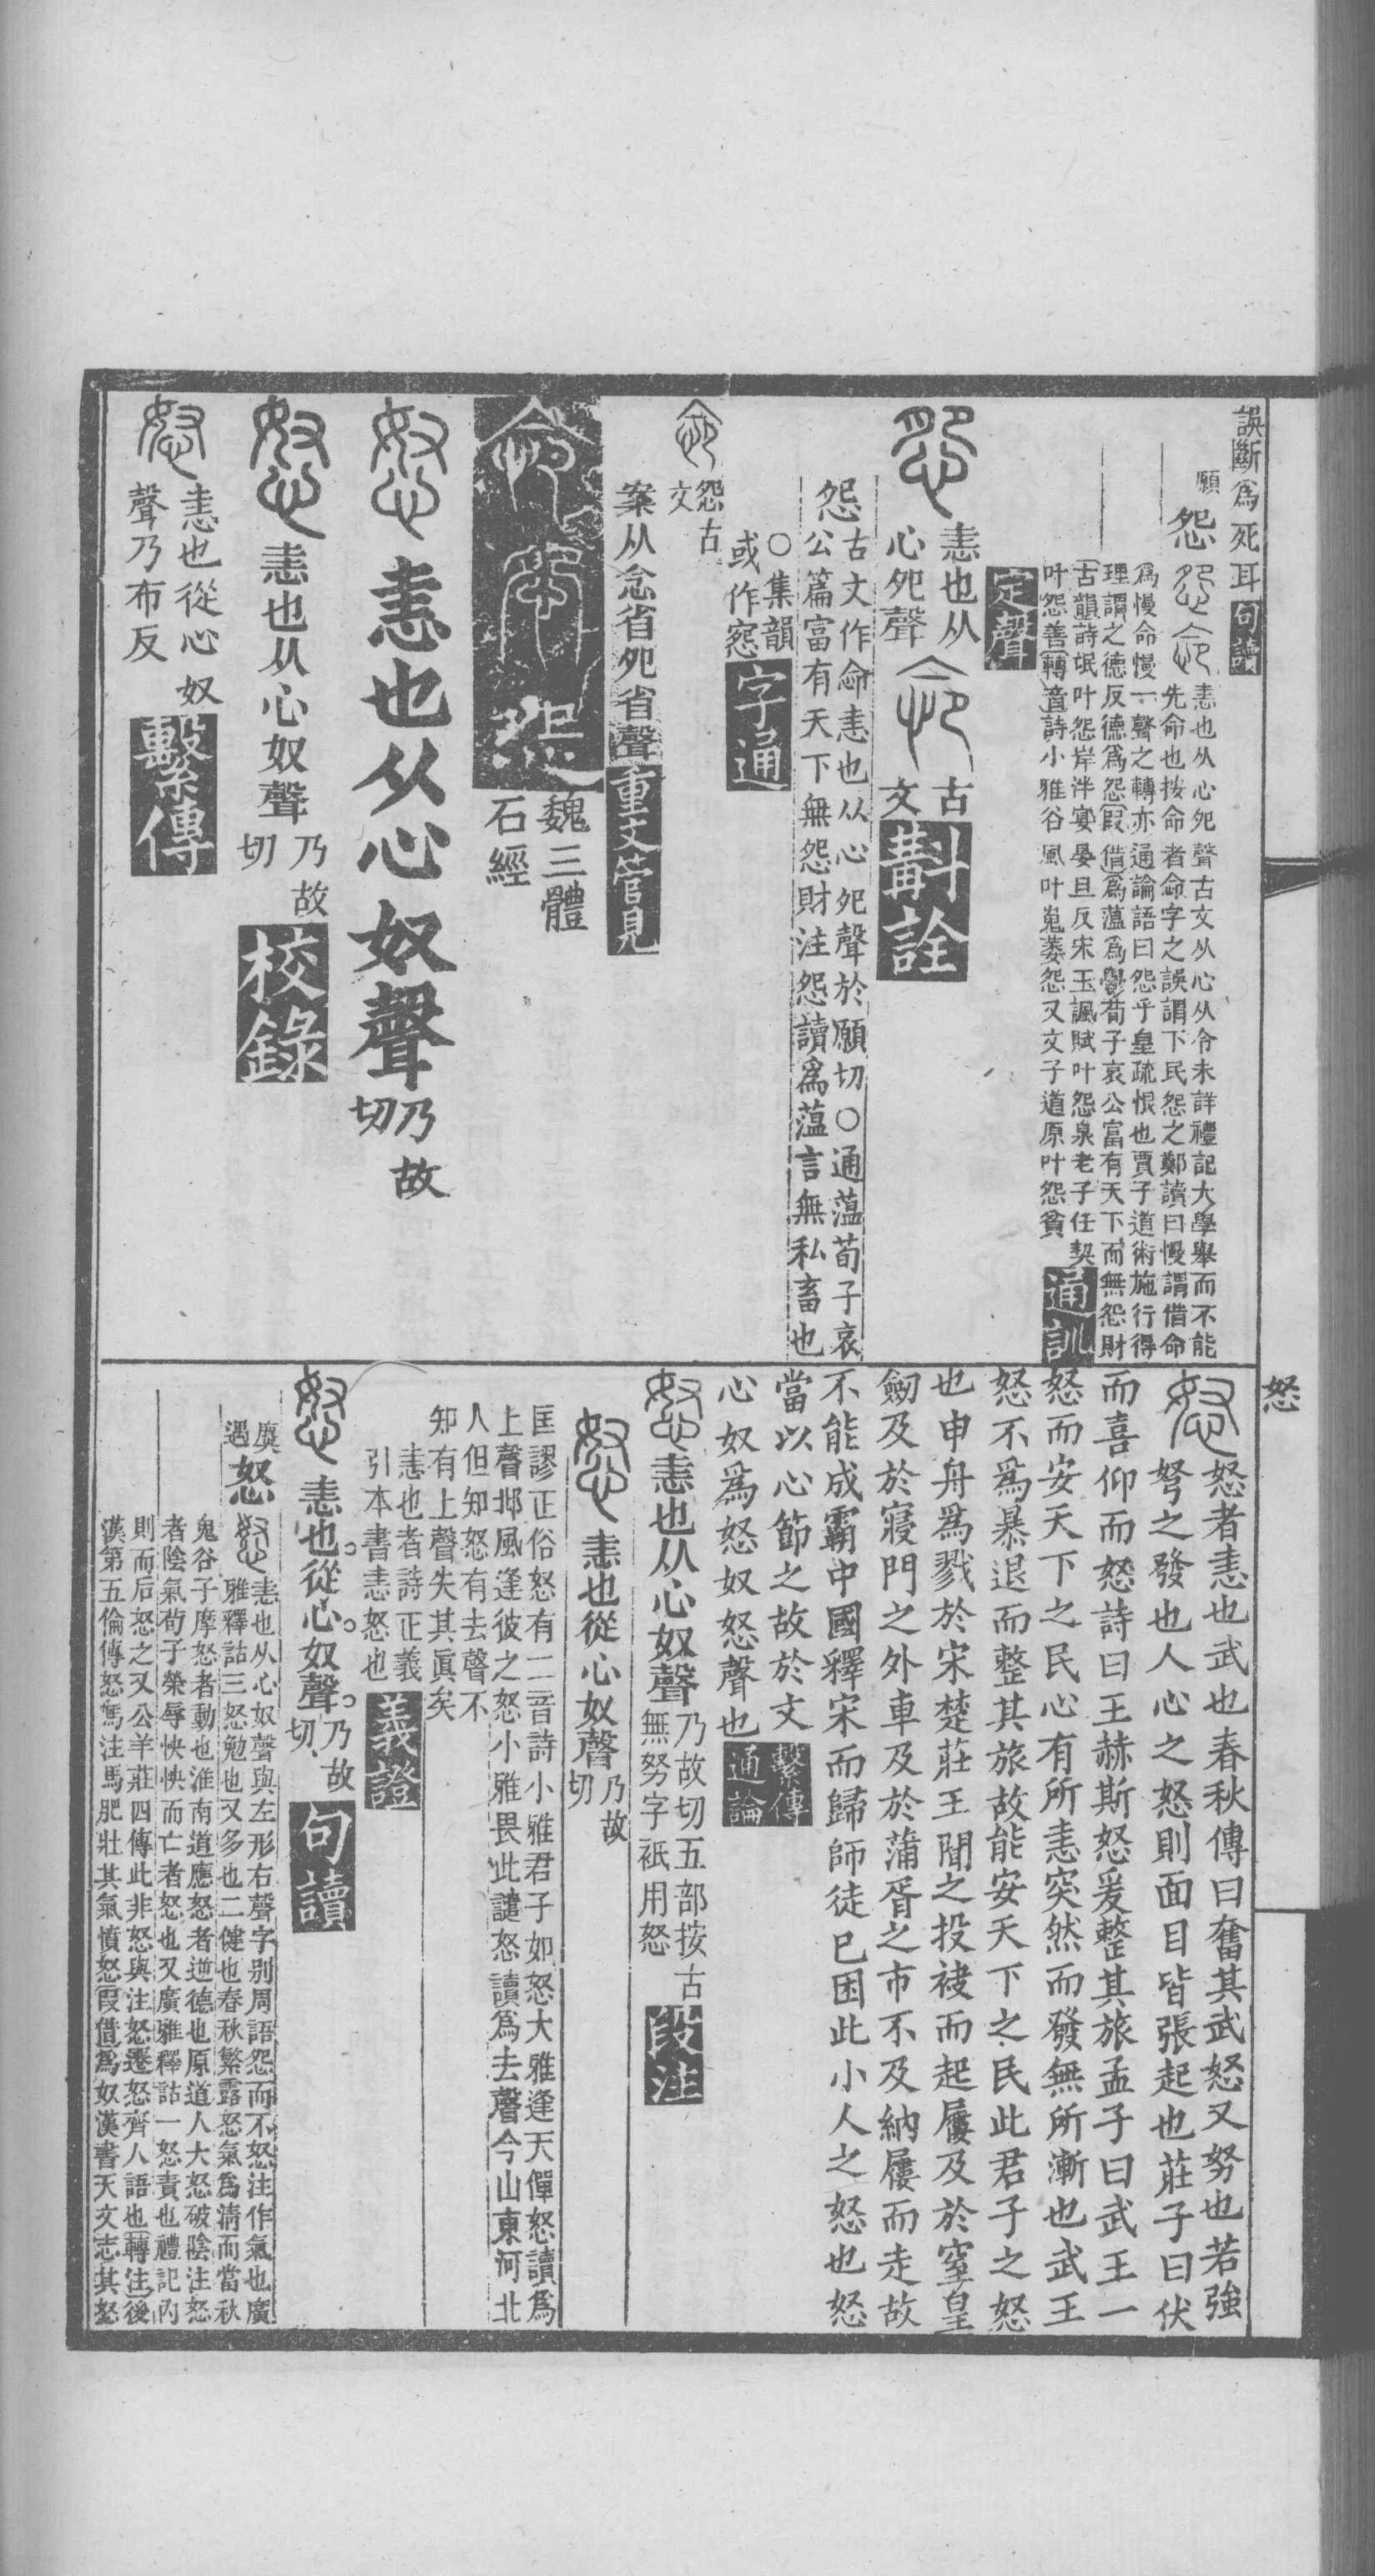 誤斷爲死耳句讀
願
怨
恚也从心夗聲古文从心从令未詳禮記大學舉而不能
先命也按命者命字之誤謂下民怨之鄭讀曰慢謂借命
爲慢命慢一聲之轉亦通論語曰怨乎皇疏恨也賈子道術施行得
理謂之德反德爲怨假借爲薀爲鬱荀子哀公富有天下而無怨財
古韻詩氓叶怨岸泮宴晏旦反宋玉諷賦叶怨泉老子任契
叶怨善轉音詩小雅谷風叶嵬萎怨又文子道原叶怨貧
通訓
定聲
恚也从
心夗聲
古
文
斠詮
怨
古文作命恚也从心夗聲於願切○通薀荀子哀
公篇富有天下無怨財注怨讀爲薀言無私畜也
○集韻
或作惌
字通
怨古
文
案从念省夗省聲重文管見
魏三體
石經
恚也从心奴聲
乃故
切
恚也从心奴聲
乃故
切
校錄
恚也從心奴
聲乃布反
繫傳
怒
怒者恚也武也春秋傳曰奮其武怒又努也若強
弩之發也人心之怒則面目皆張起也莊子曰伏
而喜仰而怒詩曰王赫斯怒爰整其旅孟子曰武王一
怒而安天下之民心有所恚突然而發無所漸也武王
怒不爲暴退而整其旅故能安天下之民此君子之怒
也申舟爲戮於宋楚莊王聞之投袂而起屨及於窒皇
劒及於寢門之外車及於蒲胥之市不及納屨而走故
不能成霸中國釋宋而歸師徒已困此小人之怒也怒
當以心節之故於文
心奴爲怒奴怒聲也
繫傳
通論
恚也从心奴聲
乃故切五部按古
無努字衹用怒
段注
恚也從心奴聲
乃故
切
匡謬正俗怒有二音詩小雅君子如怒大雅逢天僤怒讀爲
上聲邶風逢彼之怒小雅畏此譴怒讀爲去聲今山東河北
人但知怒有去聲不
知有上聲失其眞矣
恚也者詩正義
引本書恚怒也
義證
恚也從心奴聲
乃故
切
句讀
麌
遇
怒
恚也从心奴聲與左形右聲字别周語怨而不怒注作氣也廣
雅釋詁三怒勉也又多也二健也春秋繁露怒氣爲清而當秋
鬼谷子摩怒者動也淮南道應怒者逆德也原道人大怒破陰注怒
者陰氣荀子榮辱怏怏而亡者怒也又廣雅釋詁一怒責也禮記内
則而后怒之又公羊莊四傳此非怒與注怒遷怒齊人語也轉注後
漢第五倫傳怒馬注馬肥壯其氣憤怒假借爲奴漢書天文志其怒